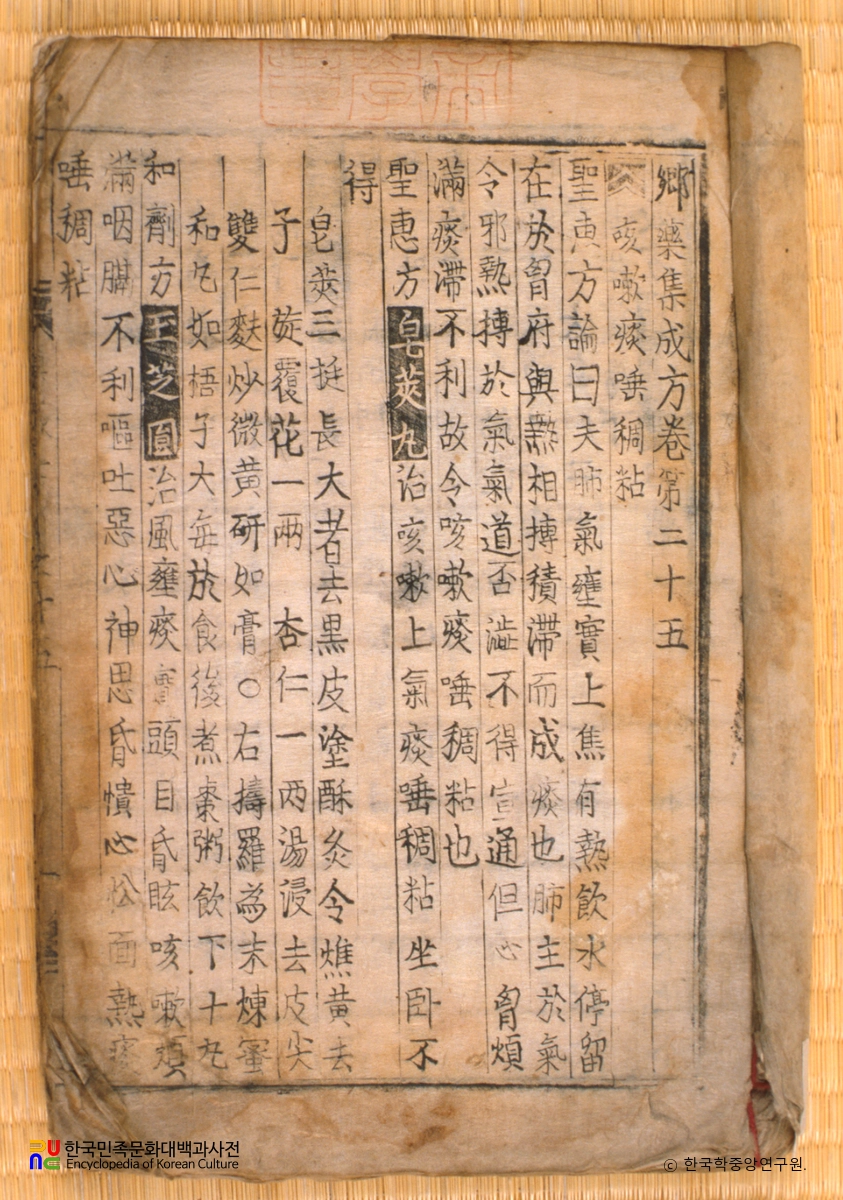 鄕藥集成方卷第二十五
咳嗽痰唾稠粘
聖惠方論曰夫肺氣壅實上焦有熱飲水停留
在於胷府與熱相搏積滯而成痰也肺主於氣
令邪熱搏於氣氣道否澁不得宣通但心胷煩
滿痰滯不利故令咳嗽痰唾稠粘也
聖惠方皂莢丸治咳嗽上氣痰唾稠粘坐卧不
得
皂莢三挺長大者去黑皮塗酥炙令燋黃去
子 旋覆花一兩 杏仁一两湯浸去皮尖
雙仁麩炒微黃研如膏○右擣羅為末煉蜜
和丸如梧子大每於食後煮棗粥飲下十丸
和劑方玉芝圓治風壅痰實頭目昏眩咳嗽煩
滿咽膈不利嘔吐惡心神思昏憒心忪面熱痰
唾稠粘
한국민족문화대백과사전
Encyclopedia of Korean Culture
© 한국학중앙연구원.